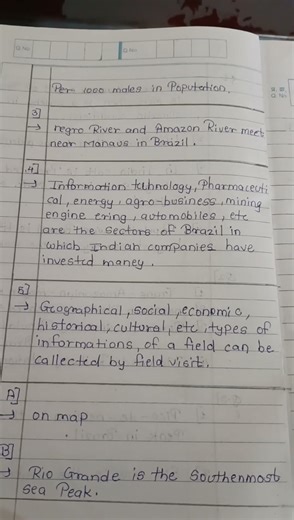 Q.No.
Q.No.
Per 1000 males in Population.
3]
→ negro River and Amazon River meets
near Manaus in Brazil.
4]
→ Information technology, Pharmaceuti
cal, energy, agro-business, mining
engine ering, automobiles, etc
are the sectors of Brazil in
which Indian companies have
invested maney.
5]
→ Geographical, social, economic,
historical, cultural, etc, types of
informations, of a field can be
callected by field visit.
A]
→ on map
B]
→ Rio Grande is the Southenmost
sea Peak.